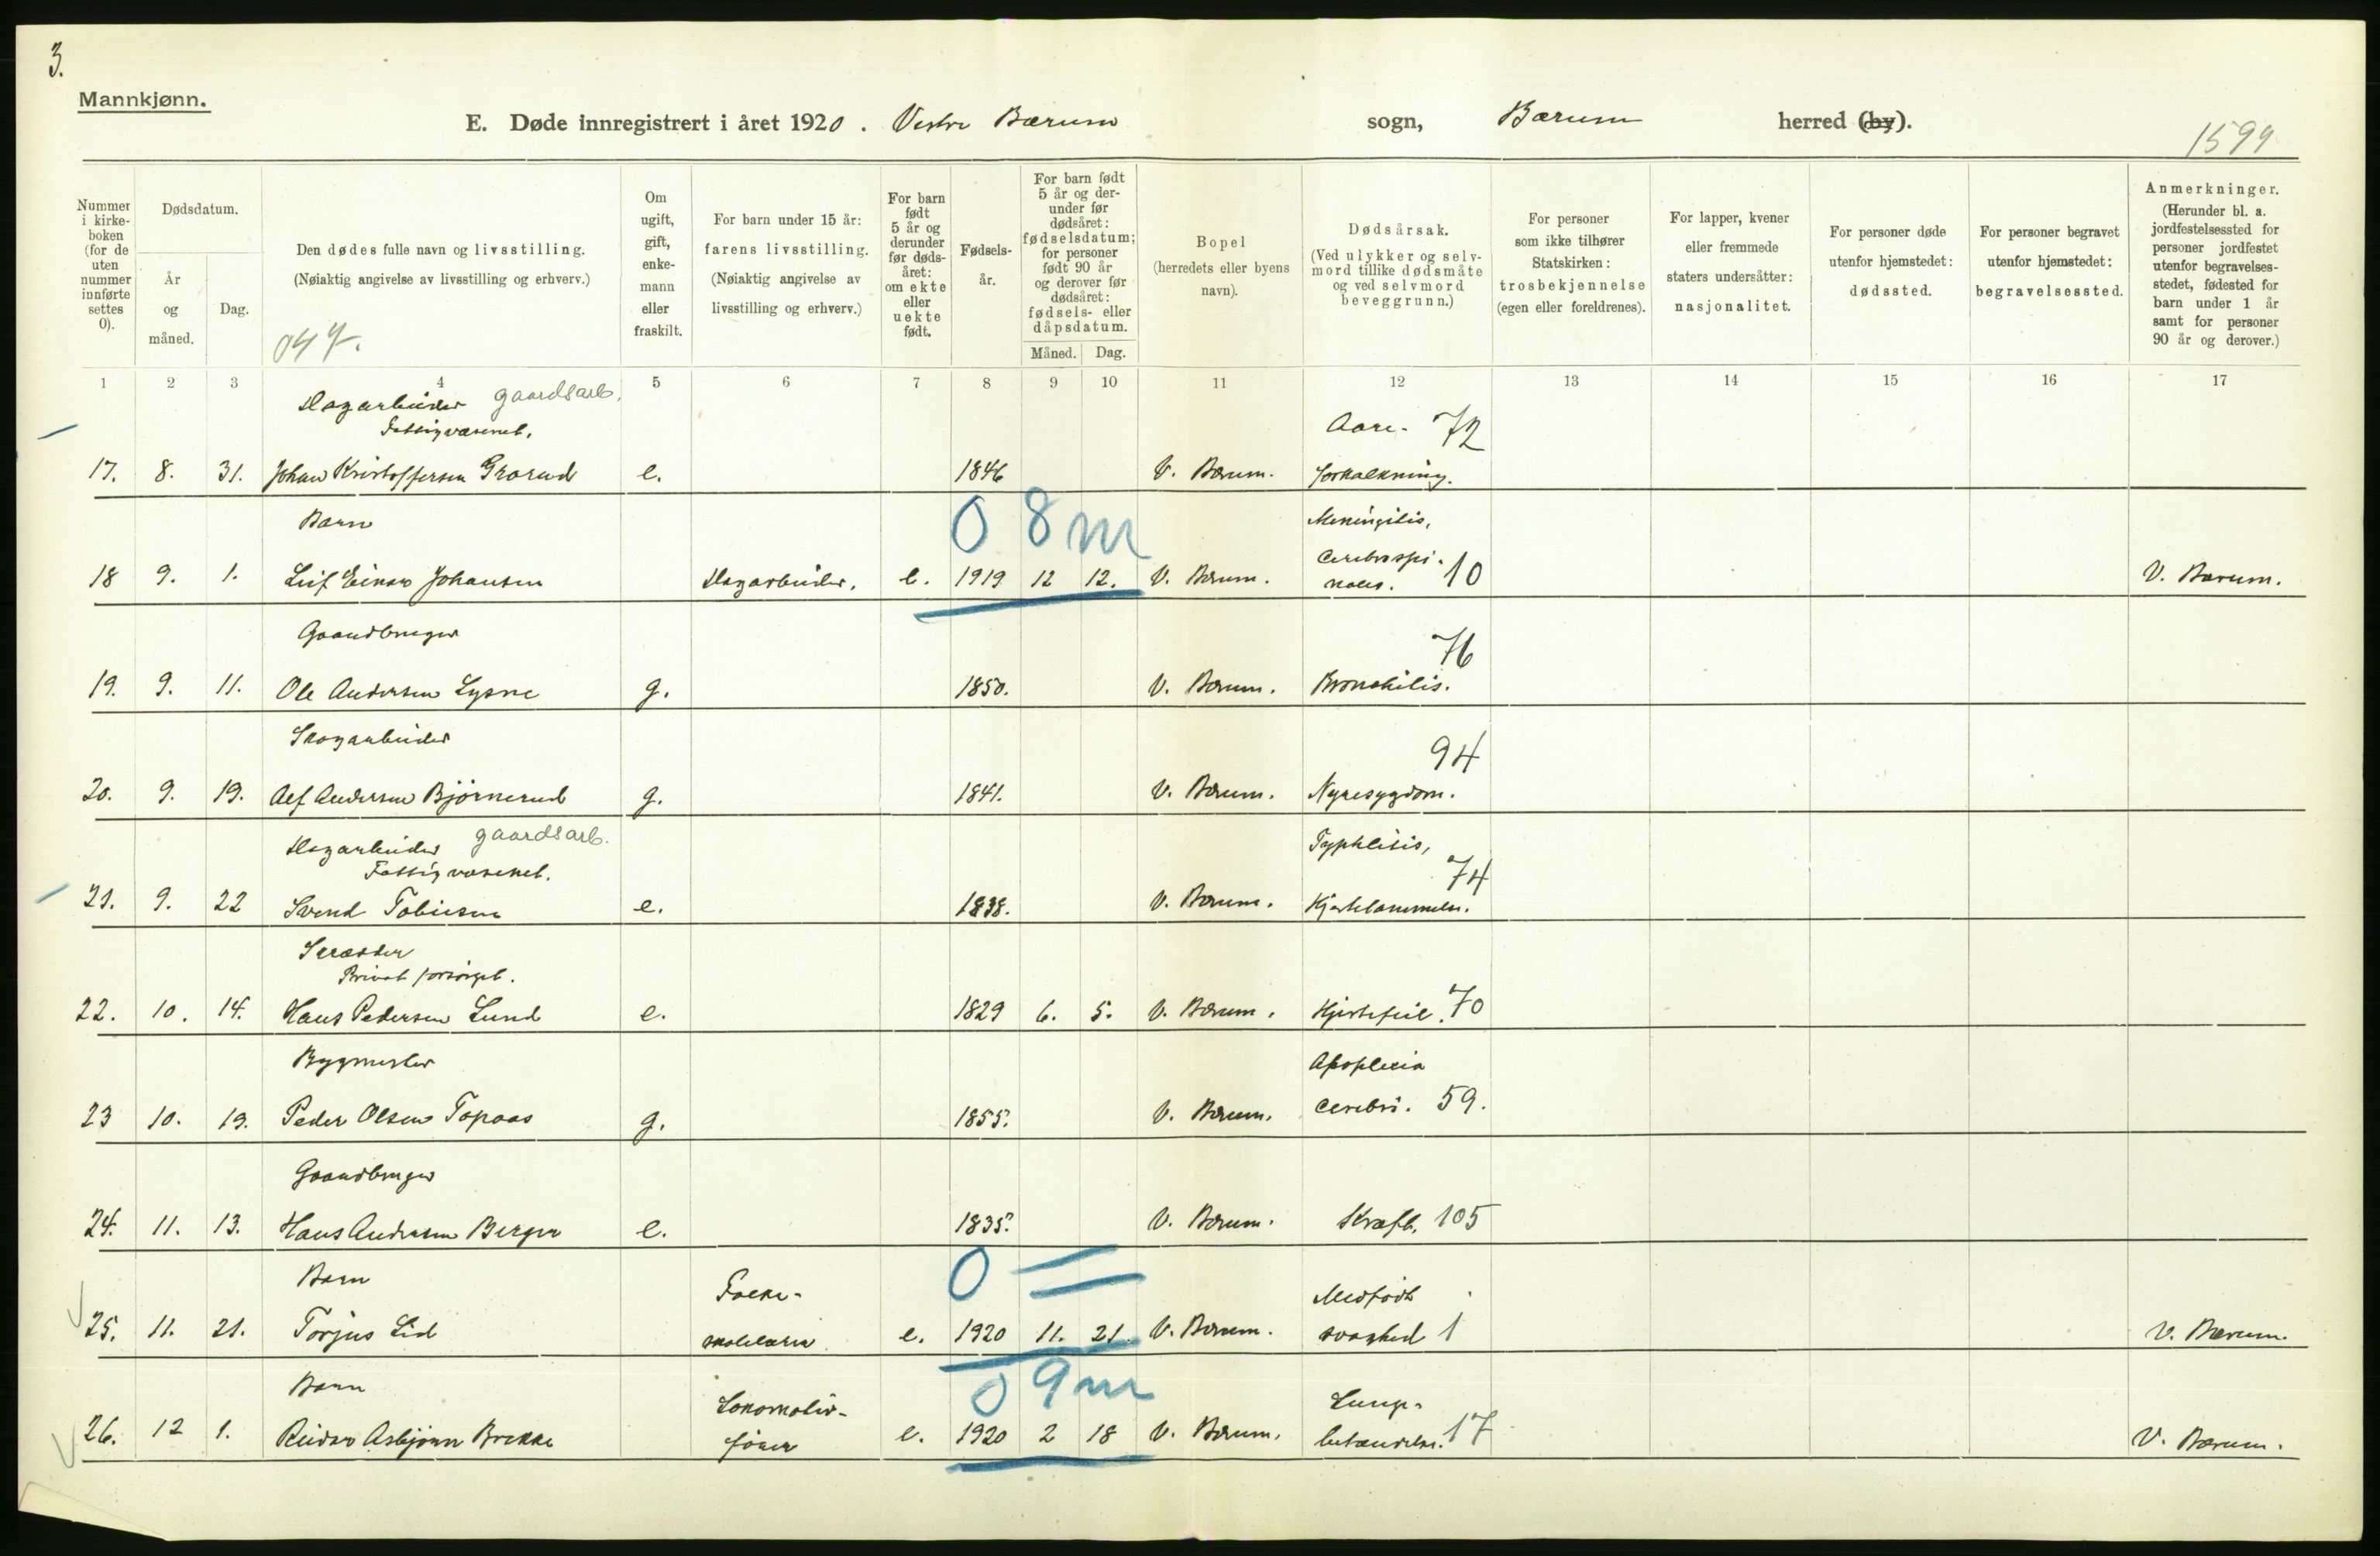 3.
Mannkjønn.
E. Døde innregistrert i året 1920. Vestre Bærum sogn, Bærum herred (by).
1599
Nummer i kirke- boken (for de uten nummer innførte settes 0).
Dødsdatum.
År og måned.
Dag.
Den dødes fulle navn og livsstilling.
(Nøiaktig angivelse av livsstilling og erhverv.)
047.
Om ugift, gift, enke- mann eller fraskilt.
For barn under 15 år: farens livsstilling.
(Nøiaktig angivelse av livsstilling og erhverv.)
For barn født 5 år og derunder før døds- året: om ekte eller uekte født.
Fødsels- år.
For barn født 5 år og der- under før dødsåret: fødselsdatum; for personer født 90 år og derover før dødsåret: fødsels- eller dåpsdatum.
Måned. Dag.
Bopel (herredets eller byens navn).
Dødsårsak.
(Ved ulykker og selv- mord tillike dødsmåte og ved selvmord beveggrunn.)
For personer som ikke tilhører Statskirken: trosbekjennelse (egen eller foreldrenes).
For lapper, kvener eller fremmede staters undersåtter: nasjonalitet.
For personer døde utenfor hjemstedet: dødssted.
For personer begravet utenfor hjemstedet: begravelsessted.
Anmerkninger.
(Herunder bl. a. jordfestelsessted for personer jordfestet utenfor begravelses- stedet, fødested for barn under 1 år samt for personer 90 år og derover.)
1 2 3 4 5 6 7 8 9 10 11 12 13 14 15 16 17
Dagarbeider gaardsarb.
Fattigvæsenet. Aare- 72
17. 8. 31. Johan Kristoffersen Grorud e. 1846 V. Bærum. forkalkning.
Barn 0 8 m Meningitis,
cerebrospi-
18 9. 1. Leif Einar Johansen Dagarbeider. e. 1919 12 12. V. Bærum. nales. 10 V. Bærum.
Gaardbruger 76
19. 9. 11. Ole Andersen Lysne g. 1850. V. Bærum. Bronchitis.
Skogarbeider 94
20. 9. 19. Alf Andersen Bjørnerud g. 1841. V. Bærum. Nyresygdom.
Dagarbeider gaardsarb. Typhlitis,
Fattigvæsenet. 74
21. 9. 22 Svend Tobiesen e. 1838. V. Bærum. Hjertelammelse.
Skrædder
Privat forsørget.
22. 10. 14. Hans Pedersen Lund e. 1829 6. 5. V. Bærum. Hjertefeil. 70
Bygmester Apoplexia
23 10. 19. Peder Olsen Topaas g. 1855. V. Bærum. cerebri. 59.
Gaardbruger
24. 11. 13. Hans Andersen Berger e. 1835. V. Bærum. Kræft. 105
Barn Folke- 0 Medfødt
25. 11. 21. Torjus Lid skolelærer e. 1920 11. 21. V. Bærum. svaghed 1 V. Bærum.
Barn Lokomotiv- 0 9 m Lunge-
26. 12 1. Reidar Asbjørn Brekke fører e. 1920 2 18 V. Bærum. betændelse. 17 V. Bærum.